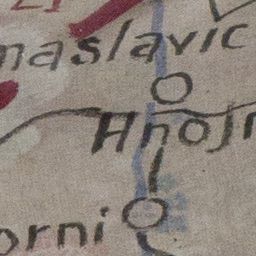 maslavic
Hnojn
orni